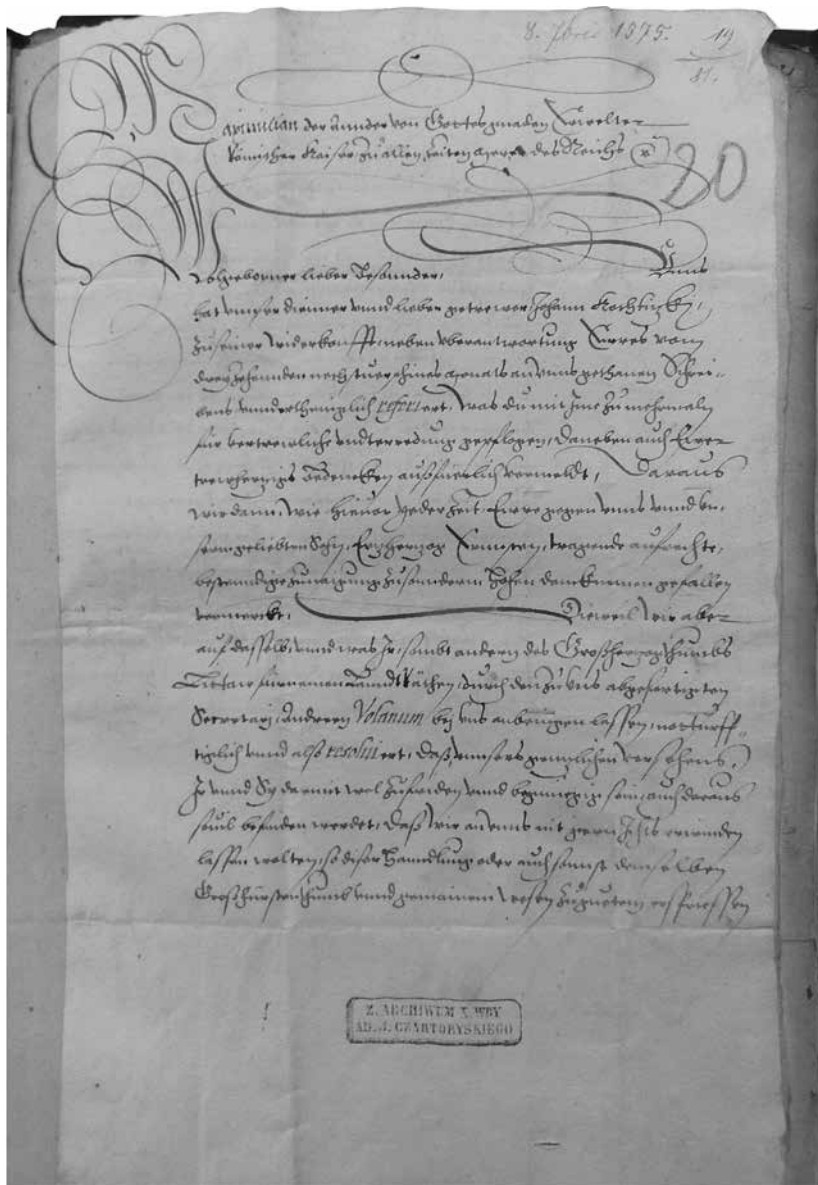 8. 7bris 1575. 19
81.
20
Maximilian der Annder von Gottes gnaden Erwelter
Römischer Kaiser zu allen zeiten Merer des Reichs
Wolgeborner lieber Besonnder, Unns
hat unnser dienner unnd lieber getrewer, Johann Kochtitzky,
zu seiner widerkonfft, neben uberantwortung Eures vom
dreyzehennden nechstverschines Monats an unns gethanen Schrei-
bens unnderthenigclich referiert, was du mit Ime zu mehrmaln
für vertrewliche unterredung gepflogen, daneben auch Eur
trewhertzigs Bedencken außfuerlich vermeldt, Daraus
wir dann, wie hievor yederzeit, Eure gegen unns unnd un-
serm geliebten Sohn, Ertzhertzog Ernnsten, tragende aufrechte,
bestenndige zunaigung zu sonnderm hohen dannknemen gefallen
vermerckt, Dieweil wir aber
auf dasselb, unnd was Ir, sambt andern des Großhertzogthumbs
Littaw fürnemen Lanndt Räthen, durch den zu uns abgefertigten
Secretarj, Andreen Volanum bej uns anbringen lassen, notturff-
tiglich unnd also resolviert, daß unnsers gentzlichen versehens,
Ir unnd Sy darmit wol zufriden unnd benüegig sein, auch daraus
sovil befinden werdet, daß wir an unns nit gern Ichts erwinden
lassen wolten, so diser Hanndlung oder auch sonnst demselben
Großfürstenthumb unnd gemainem wesen zu guetem ersprießen
Z ARCHIWUM X. WDY
AD. J. CZARTORYSKIEGO